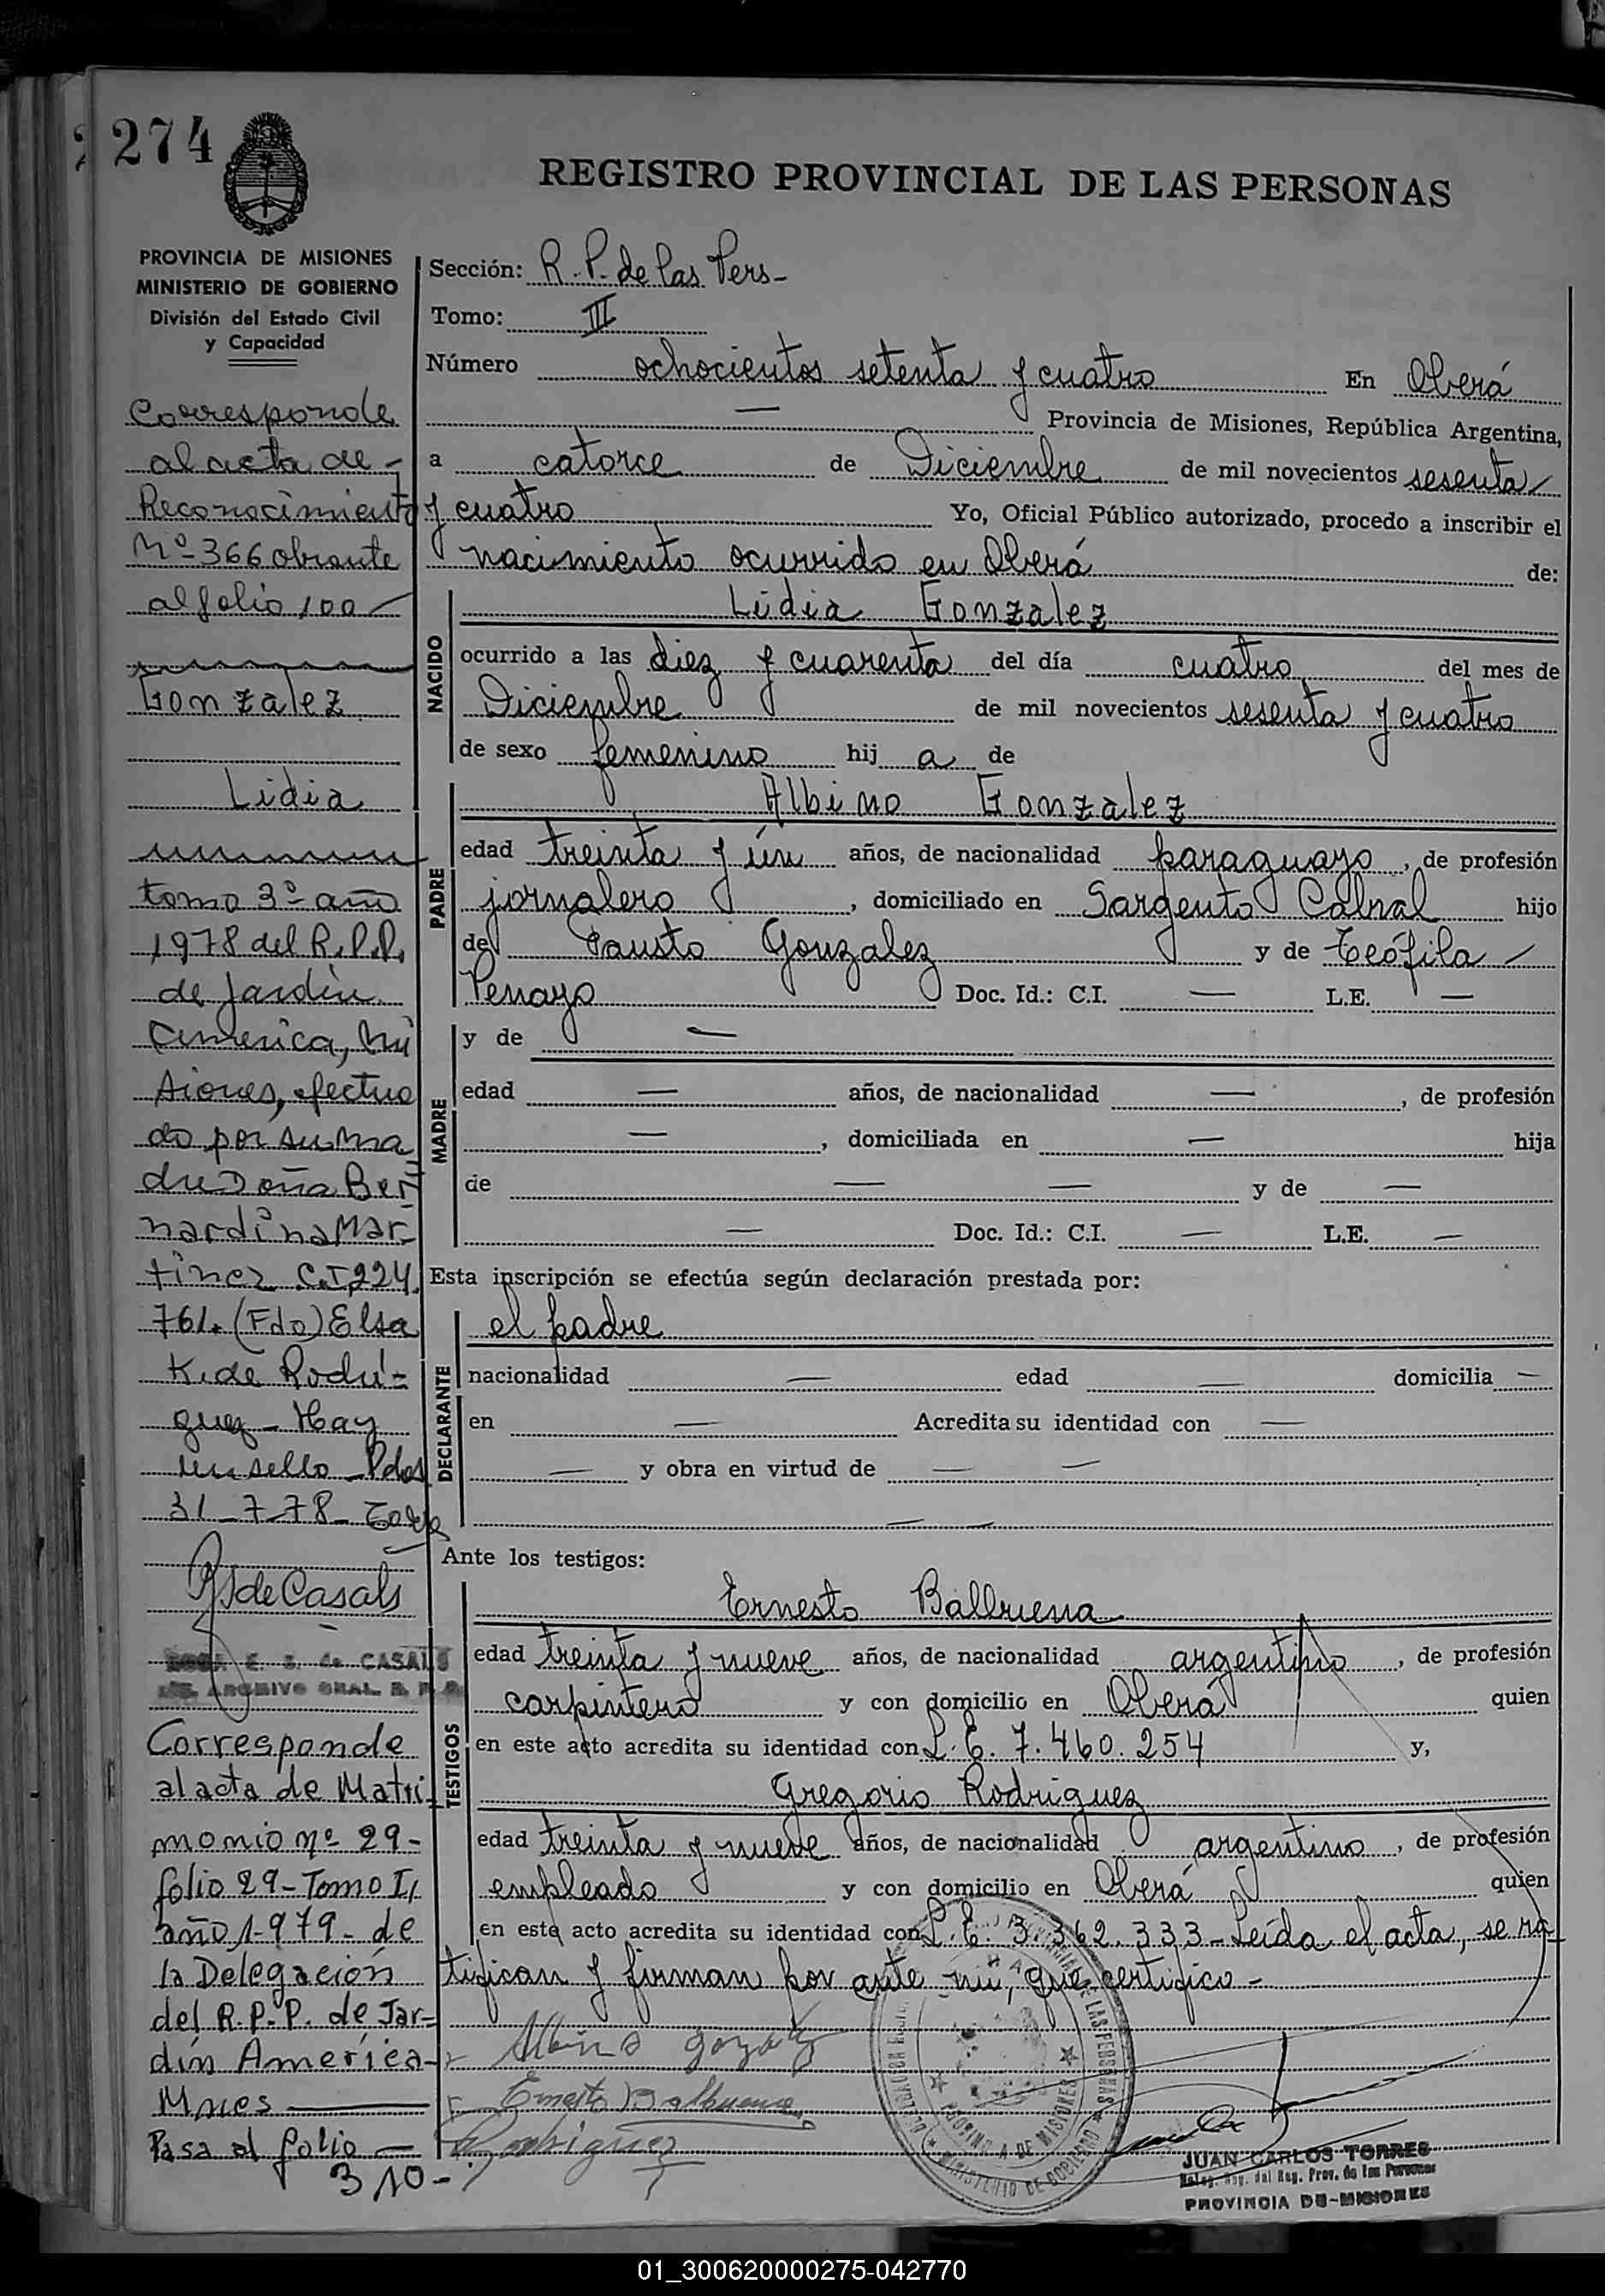 274
REGISTRO PROVINCIAL DE LAS PERSONAS
PROVINCIA DE MISIONES
MINISTERIO DE GOBIERNO
División del Estado Civil
y Capacidad
Corresponde
al acta de
Reconocimiento
Nº-366 obrante
al folio 100
Gonzalez
Lidia
tomo 3º- año
1978 del R.P.P.
de Jardín
America, Mi
siones, efectua
do por su ma
dre Doña Ber
nardina Mar-
tinez C.I 224.
761. (Fdo) Elsa
K. de Rodri-
guez - Hay
un sello - Pdas
31-7-78-
RSdeCasals
ROSA E. S. de CASALS
ARCHIVO GRAL. R. P. P.
Corresponde
al acta de Matri
monio nº 29-
folio 29-Tomo I,
año 1-979- de
la Delegación
del R.P.P. de Jar-
dín América-
Mnes
Pasa al folio
310-
Sección: R.P. de las Pers-
Tomo: III
Número ochocientos setenta y cuatro En Oberá
— Provincia de Misiones, República Argentina,
a catorce de Diciembre de mil novecientos sesenta
y cuatro Yo, Oficial Público autorizado, procedo a inscribir el
nacimiento ocurrido en Oberá de:
NACIDO
Lidia Gonzalez
ocurrido a las diez y cuarenta del día cuatro del mes de
Diciembre de mil novecientos sesenta y cuatro
de sexo femenino hij a de
PADRE
Albino Gonzalez
edad treinta y ún años, de nacionalidad paraguayo, de profesión
jornalero, domiciliado en Sargento Cabral hijo
de Fausto Gonzalez y de Teófila
Penayo Doc. Id.: C.I. — L.E. —
MADRE
y de —
edad — años, de nacionalidad —, de profesión
—, domiciliada en — hija
de — — y de —
— Doc. Id.: C.I. — L.E. —
Esta inscripción se efectúa según declaración prestada por:
DECLARANTE
el padre
nacionalidad — edad — domicilia —
en — Acredita su identidad con —
— y obra en virtud de — —
— —
Ante los testigos:
TESTIGOS
Ernesto Balbuena
edad treinta y nueve años, de nacionalidad argentino, de profesión
carpintero y con domicilio en Oberá quien
en este acto acredita su identidad con L.E. 7.460.254 y,
Gregorio Rodriguez
edad treinta y nueve años, de nacionalidad argentino, de profesión
empleado y con domicilio en Oberá quien
en este acto acredita su identidad con L.E. 3.362.333- Leída el acta, se ra
tifican y firman por ante mi, que certifico-
Albino
Ernesto Balbuena
Rodriguez
MINISTERIO DE GOBIERNO
PROVINCIA DE MISIONES
JUAN CARLOS TORRES
del Reg. Prov. de las Personas
PROVINCIA DE MISIONES
01_300620000275-042770